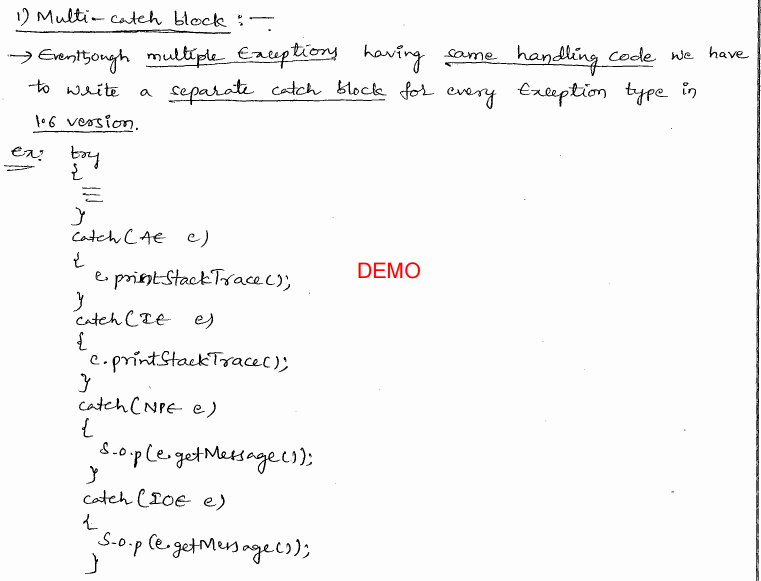 1) Multi-catch block :-
→ Eventhough multiple Exceptions having same handling code we have
to write a separate catch block for every Exception type in
1.6 version.
Ex: try
{
≡
}
catch(AE e)
{
e.printStackTrace();
}
catch(IE e)
{
e.printStackTrace();
}
catch(NPE e)
{
S.o.p(e.getMessage());
}
catch(IOE e)
{
S.o.p(e.getMessage());
}
DEMO